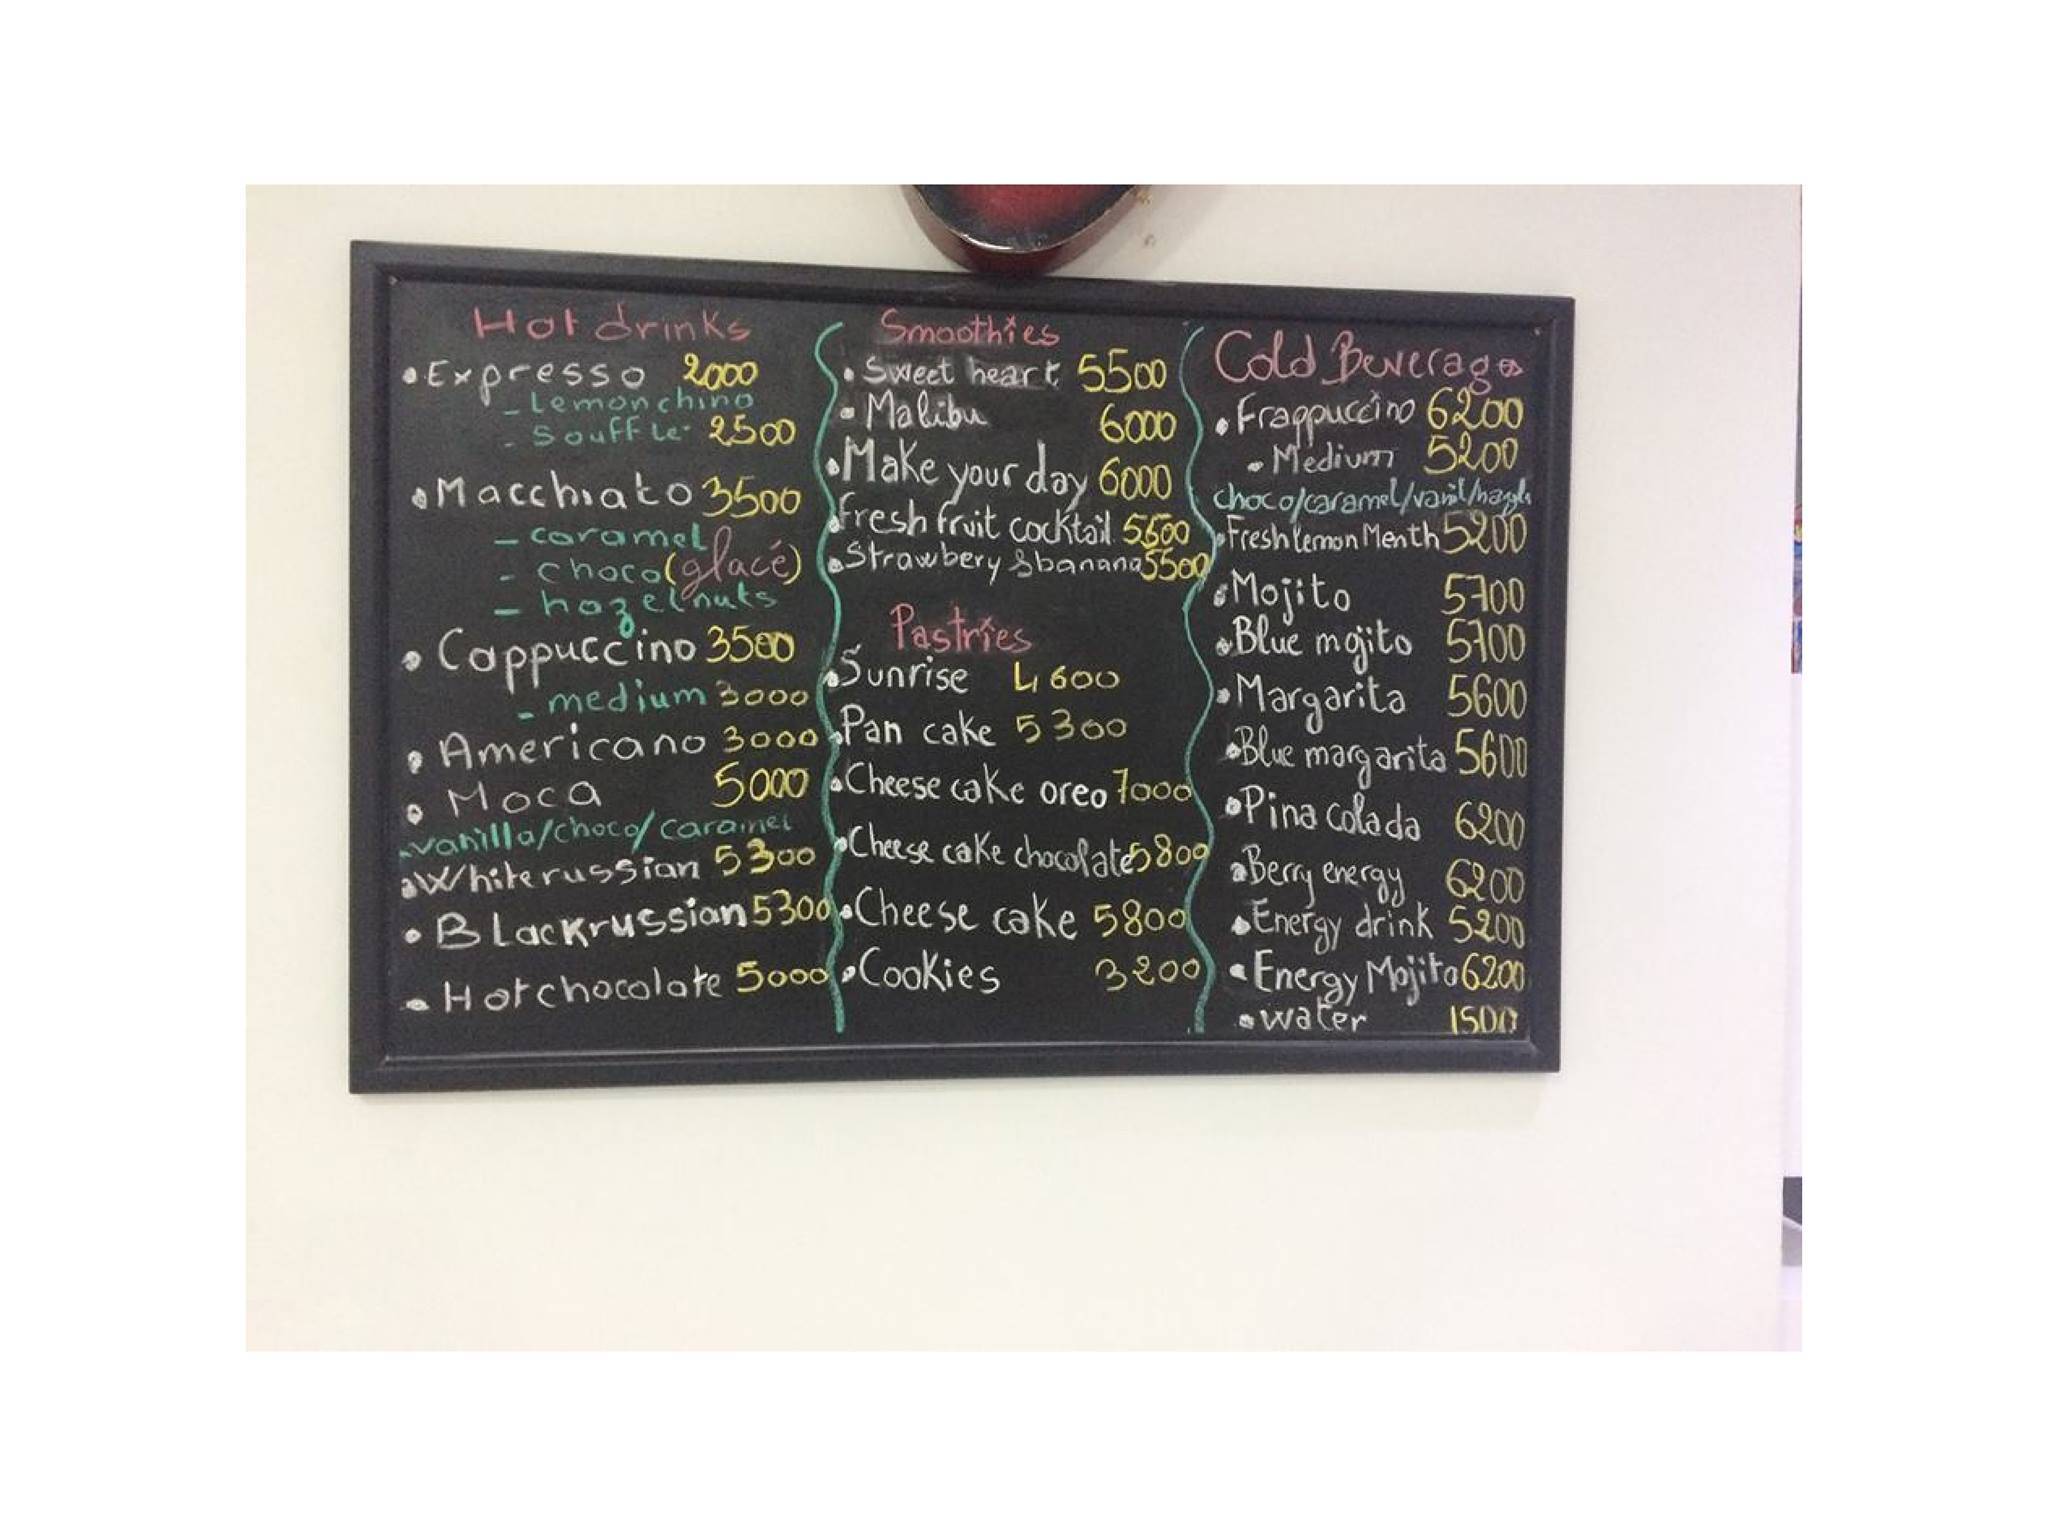 Hot drinks
• Expresso 2000
- Lemonchino
- Souffle 2500
• Macchiato 3500
- caramel
- choco (glacé)
- hazelnuts
• Cappuccino 3500
- medium 3000
• Americano 3000
• Moca 5000
- vanilla/choco/caramel
• Whiterussian 5300
• Blackrussian 5300
• Hotchocolate 5000
Smoothies
• Sweet heart 5500
• Malibu 6000
• Make your day 6000
• Fresh fruit cocktail 5500
• Strawbery & banana 5500
Pastries
• Sunrise 4600
• Pan cake 5300
• Cheese cake oreo 7000
• Cheese cake chocolate 5800
• Cheese cake 5800
• Cookies 3200
Cold Beverages
• Frappuccino 6200
• Medium 5200
choco/caramel/vanil/
• Fresh lemon Menth 5200
• Mojito 5700
• Blue mojito 5700
• Margarita 5600
• Blue margarita 5600
• Pina colada 6200
• Berry energy 6200
• Energy drink 5200
• Energy Mojito 6200
• water 1500